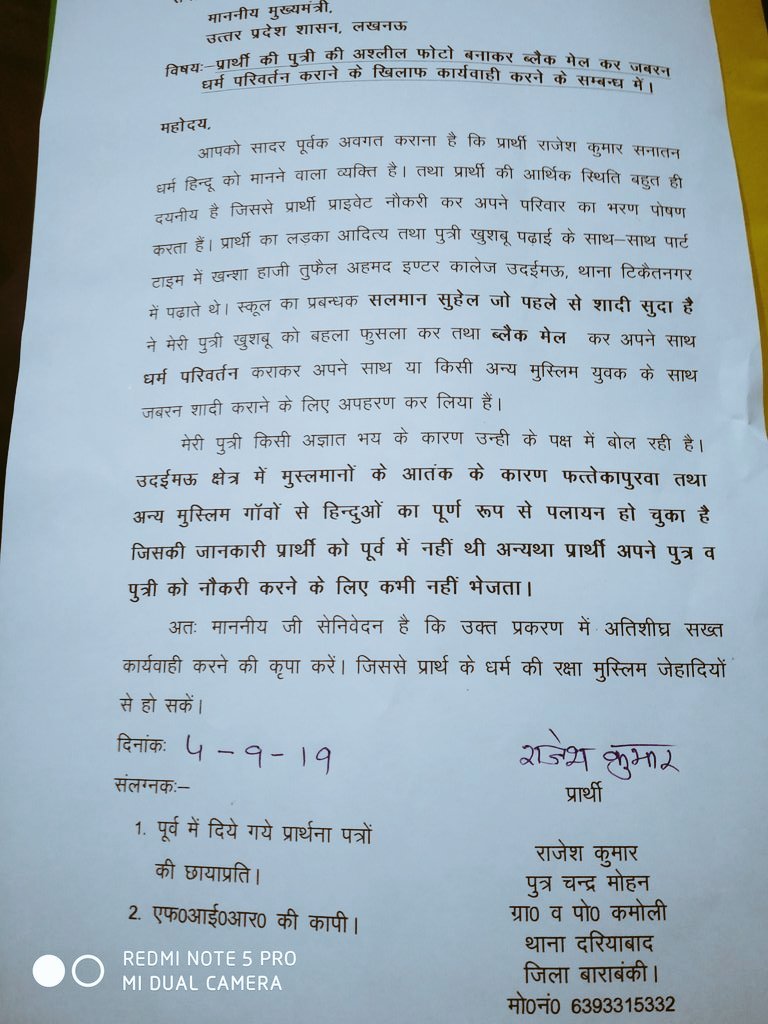 माननीय मुख्यमंत्री,
उत्तर प्रदेश शासन, लखनऊ
विषयः–प्रार्थी की पुत्री की अश्लील फोटो बनाकर ब्लैक मेल कर जबरन
धर्म परिवर्तन कराने के खिलाफ कार्यवाही करने के सम्बन्ध में।
महोदय,
आपको सादर पूर्वक अवगत कराना है कि प्रार्थी राजेश कुमार सनातन
धर्म हिन्दू को मानने वाला व्यक्ति है। तथा प्रार्थी की आर्थिक स्थिति बहुत ही
दयनीय है जिससे प्रार्थी प्राइवेट नौकरी कर अपने परिवार का भरण पोषण
करता हैं। प्रार्थी का लड़का आदित्य तथा पुत्री खुशबू पढ़ाई के साथ–साथ पार्ट
टाइम में खन्शा हाजी तुफैल अहमद इण्टर कालेज उदईमऊ, थाना टिकैतनगर
में पढाते थे। स्कूल का प्रबन्धक सलमान सुहेल जो पहले से शादी सुदा है
ने मेरी पुत्री खुशबू को बहला फुसला कर तथा ब्लैक मेल कर अपने साथ
धर्म परिवर्तन कराकर अपने साथ या किसी अन्य मुस्लिम युवक के साथ
जबरन शादी कराने के लिए अपहरण कर लिया हैं।
मेरी पुत्री किसी अज्ञात भय के कारण उन्ही के पक्ष में बोल रही है।
उदईमऊ क्षेत्र में मुस्लमानों के आतंक के कारण फत्तेकापुरवा तथा
अन्य मुस्लिम गॉवों से हिन्दुओं का पूर्ण रूप से पलायन हो चुका है
जिसकी जानकारी प्रार्थी को पूर्व में नहीं थी अन्यथा प्रार्थी अपने पुत्र व
पुत्री को नौकरी करने के लिए कभी नहीं भेजता।
अतः माननीय जी सेनिवेदन है कि उक्त प्रकरण में अतिशीघ्र सख्त
कार्यवाही करने की कृपा करें। जिससे प्रार्थ के धर्म की रक्षा मुस्लिम जेहादियों
से हो सकें।
दिनांकः 4 – 9 – 19
राजेश कुमार
प्रार्थी
संलग्नकः–
1. पूर्व में दिये गये प्रार्थना पत्रों
की छायाप्रति।
2. एफ0आई0आर0 की कापी।
राजेश कुमार
पुत्र चन्द्र मोहन
ग्रा0 व पो0 कमोली
थाना दरियाबाद
जिला बाराबंकी।
मो0नं0 6393315332
REDMI NOTE 5 PRO
MI DUAL CAMERA